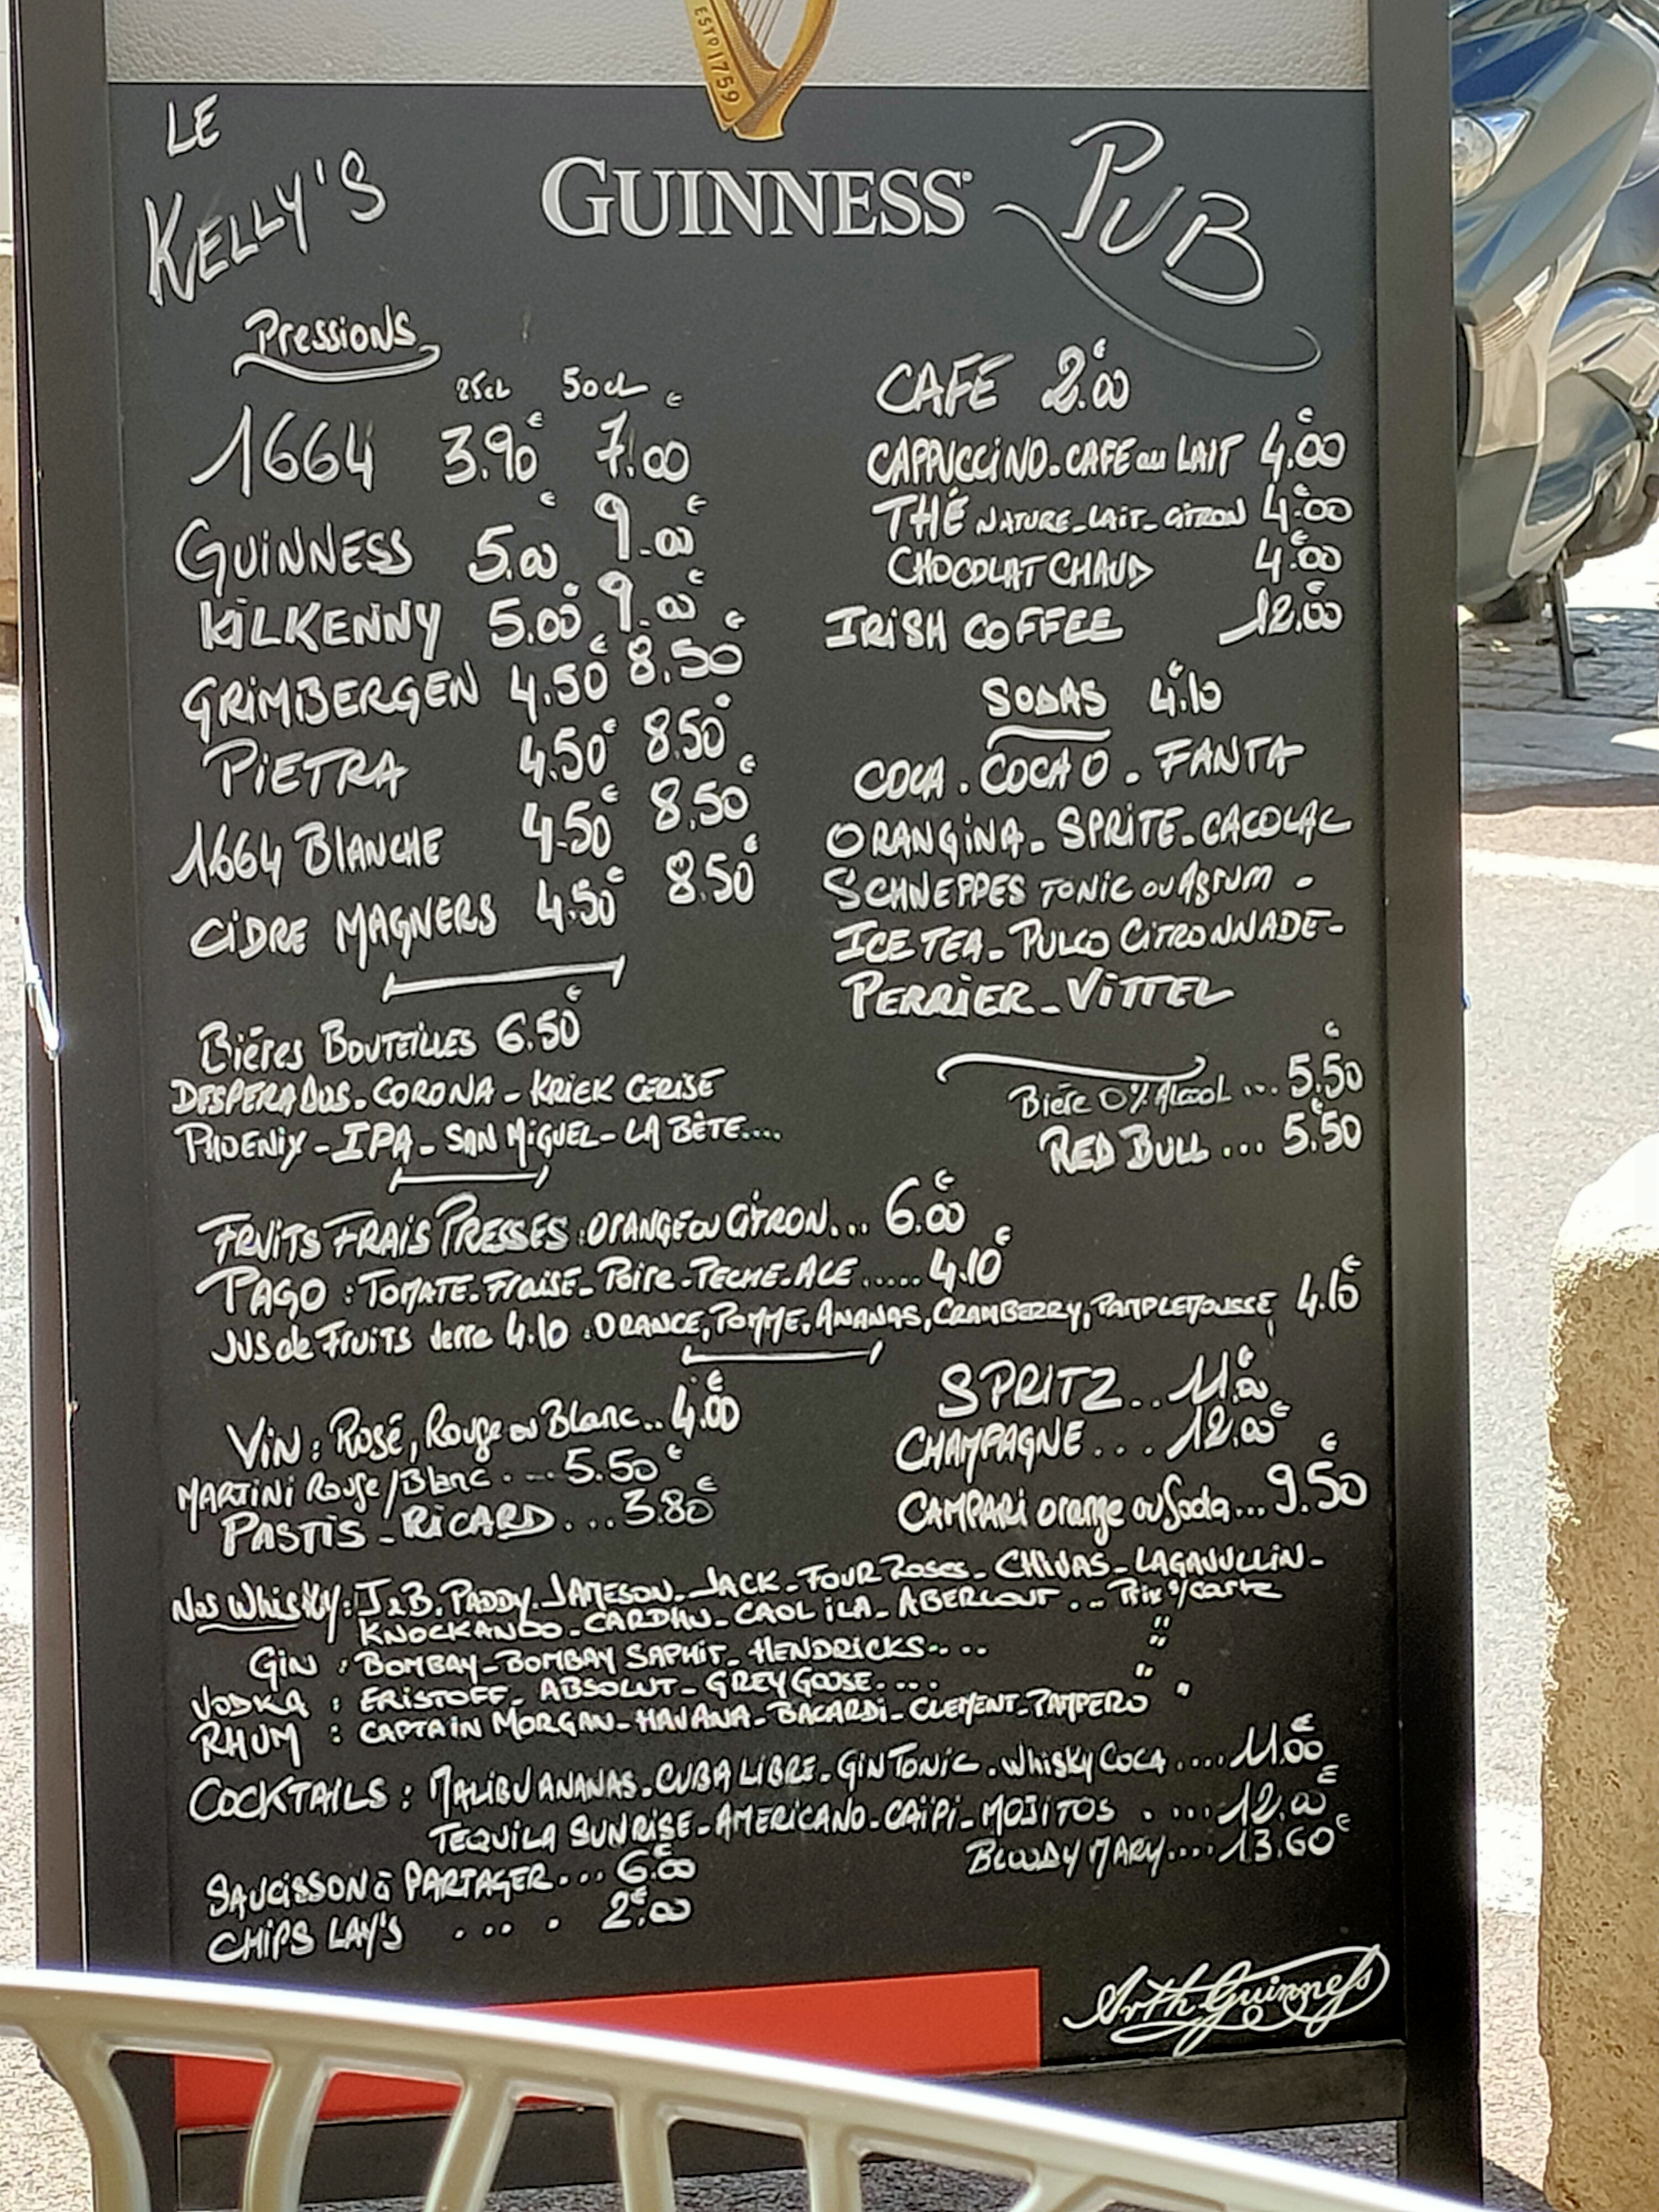 ESTD 1759
LE
KELLY'S
GUINNESS
PUB
Pressions
25cl 50cl
1664 3.90€ 7.00€
GUINNESS 5.00€ 9.00€
KILKENNY 5.00€ 9.00€
GRIMBERGEN 4.50€ 8.50€
PIETRA 4.50€ 8.50€
1664 BLANCHE 4.50€ 8.50€
CIDRE MAGNERS 4.50€ 8.50€
CAFÉ 2.00€
CAPPUCCINO - CAFE au LAIT 4.00€
THÉ NATURE - LAIT - CITRON 4.00€
CHOCOLAT CHAUD 4.00€
IRISH COFFEE 12.00€
SODAS 4.10€
COCA . COCA O . FANTA
ORANGINA - SPRITE - CACOLAC
SCHWEPPES TONIC ou AGRUM -
ICE TEA - PULCO CITRONNADE -
PERRIER - VITTEL
Biéres BOUTEILLES 6.50€
DESPERADOS - CORONA - KRIEK CERISE
PHOENIX - IPA - SAN MIGUEL - LA BÊTE....
Bière 0% Alcool ... 5.50€
RED BULL ... 5.50€
FRUITS FRAIS PRESSES : ORANGE ou CITRON... 6.00€
PAGO : TOMATE - FRAISE - Poire - PECHE - ACE ..... 4.10€
JUS de FRUITS verre 4.10 : ORANGE, POMME, ANANAS, CRAMBERRY, PAMPLEMOUSSE 4.10€
VIN : Rosé, Rouge ou Blanc.. 4.00€
MARTINI Rouge/Blanc .... 5.50€
PASTIS - RICARD ... 3.80€
SPRITZ.. 11.00€
CHAMPAGNE ... 12.00€
CAMPARI orange ou Soda... 9.50€
Nos Whisky : J&B. PADDY. JAMESON - JACK - FOUR Roses - CHIVAS - LAGAVULLIN -
KNOCKANDO - CARDHU - CAOL ILA - ABERLOUR ... Prix s/carte
GIN : BOMBAY - BOMBAY SAPHIR - HENDRICKS.... "
VODKA : ERISTOFF - ABSOLUT - GREY GOOSE.... "
RHUM : CAPTAIN MORGAN - HAVANA - BACARDI - CLEMENT - PAMPERO "
COCKTAILS : MALIBU ANANAS . CUBA LIBRE - GIN TONIC . Whisky COCA .... 11.00€
TEQUILA SUNRISE - AMERICANO - CAÏPI - MOJITOS .... 12.00€
BLOODY MARY.... 13.60€
SAUCISSON à PARTAGER... 6.00€
CHIPS LAY'S .... 2.00€
Arth Guinness